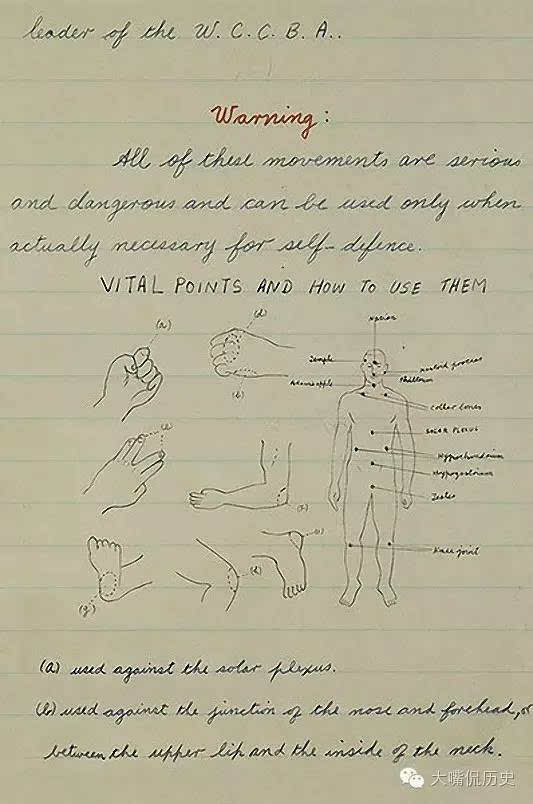 leader of the W. C. C. B. A..
Warning:
All of these movements are serious
and dangerous and can be used only when
actually necessary for self-defence.
VITAL POINTS AND HOW TO USE THEM
(a)
(d)
Nasion
Temple
Mastoid process
Adams apple
Philtrum
(b)
Collar bones
SOLAR PLEXUS
Hypochondrium
Hypogastrium
Testes
Knee joint
(g)
(a) used against the solar plexus.
(b) used against the junction of the nose and forehead, or
between the upper lip and the inside of the neck.
大嘴侃历史